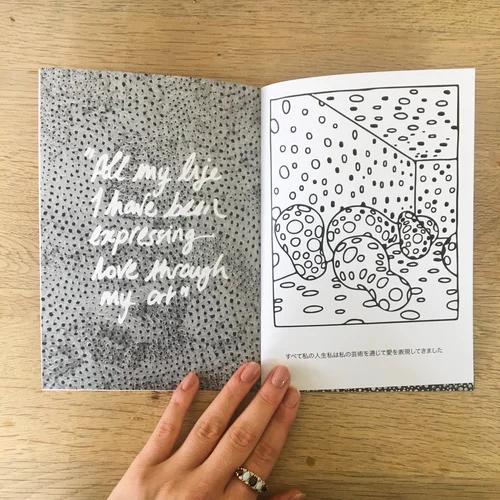 "All my life
I have been
expressing
love through
my art"
すべて私の人生私は私の芸術を通じて愛を表現してきました